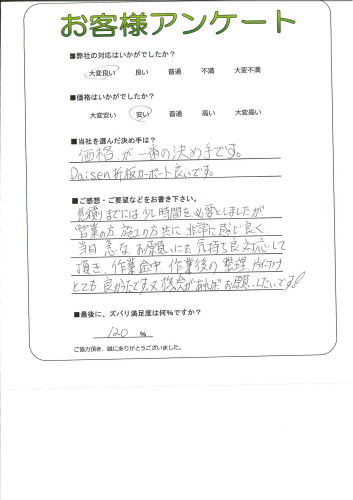 お客様アンケート
■弊社の対応はいかがでしたか?
大変良い 良い 普通 不満 大変不満
■価格はいかがでしたか?
大変安い 安い 普通 高い 大変高い
■当社を選んだ決め手は?
価格が一番の決め手です。
Daisen折板カーポート良いです。
■ご感想・ご要望などをお書き下さい。
見積りまでには少し時間を必要としましたが
営業の方、施工の方共に非常に感じ良く
当日急なお願いにも気持ち良く対応して
頂き、作業途中、作業後の整理
とても良かったです。又機会があればお願いしたいです!
■最後に、ズバリ満足度は何%ですか?
120 %
ご協力頂き、誠にありがとうございました。